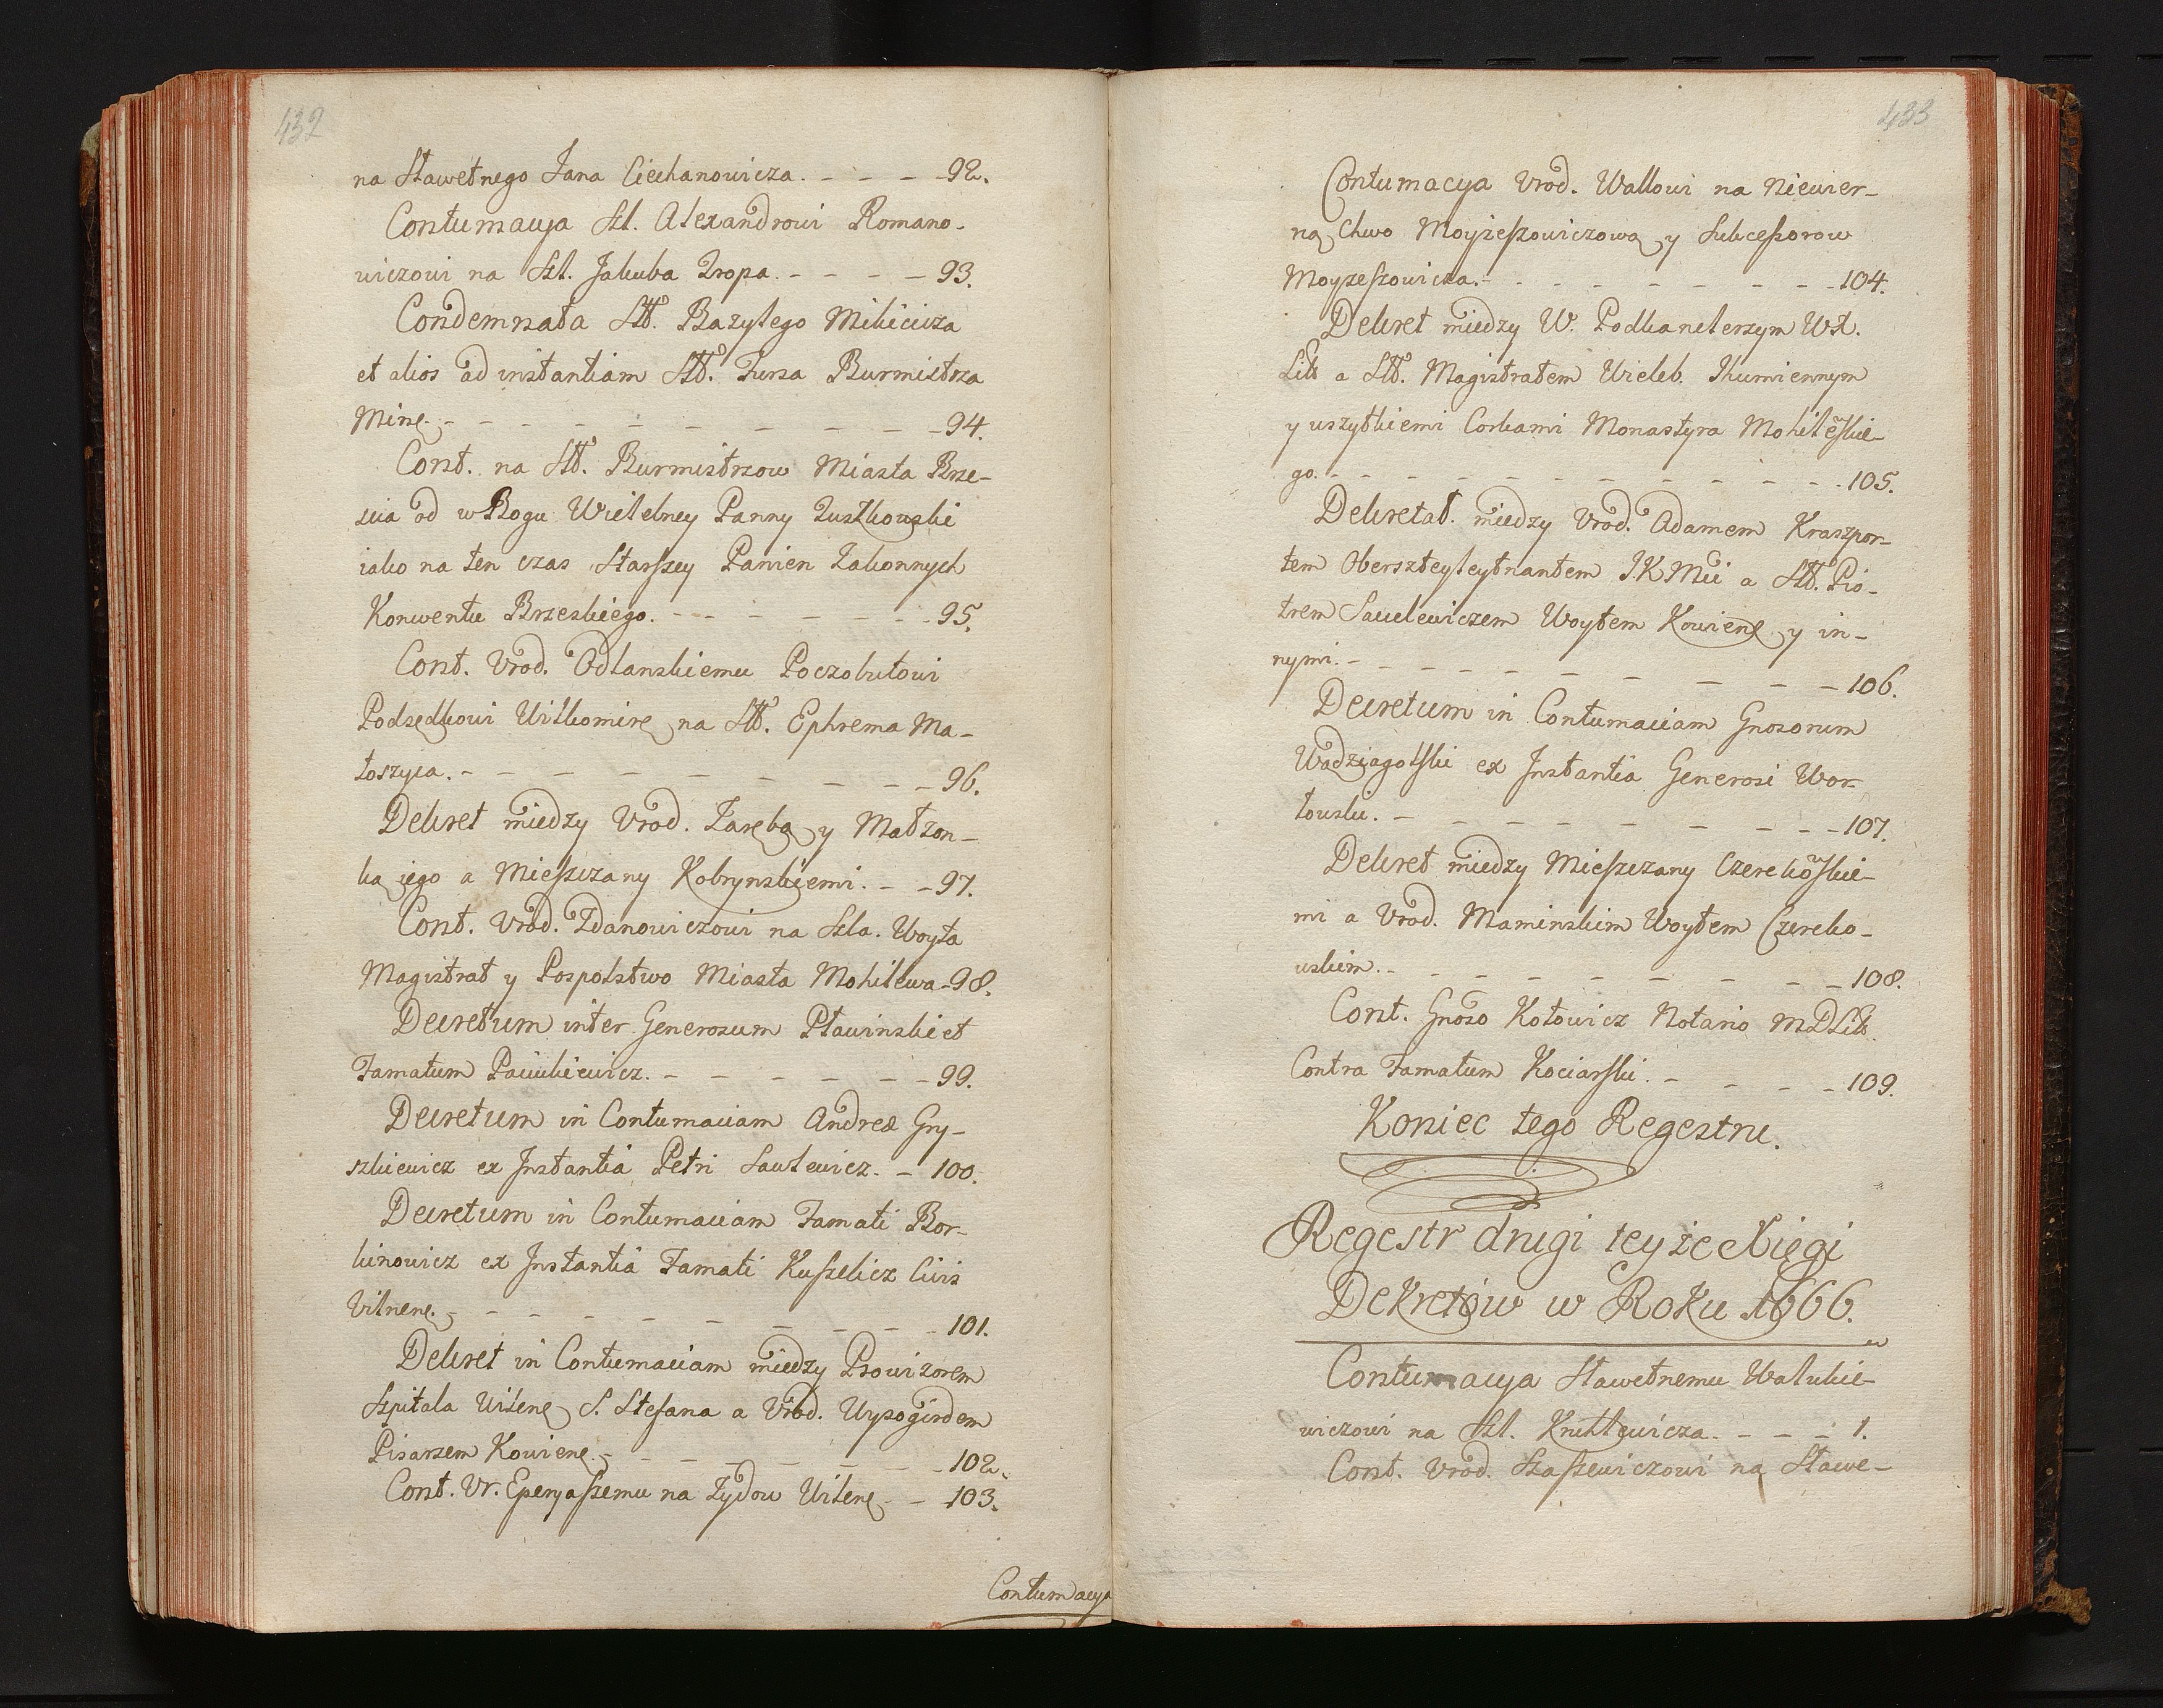 432
na Sławetnego Jana Ciechanowicza. - - - - 92.
Contumacya Szl. Alexandrowi Romano-
wiczowi na Szl. Jakuba Dropa. - - - - 93.
Condemnata Sltt. Bazylego Mikicicza
et alios ad instantiam Sltt. Fursa Burmistrza
Mińs. - - - - - - - - - 94.
Cont. na Sltt. Burmistrzow Miasta Brze-
scia od w Bogu Wielebney Panny Zuszkowski
iako na ten czas Starszey Panien Zakonnych
Konwentu Brzeskiego. - - - - - - - 95.
Cont. Vrod. Odlanskiemu Poczobutowi
Podsędkowi Wiłkomirs. na Sltt. Ephrema Ma-
toszyca. - - - - - - - - - 96.
Dekret między Vrod. Zarębą y Małżon-
ką jego a Mieszczany Kobrynskiemi. - - 97.
Cont. Vrod. Zdanowiczowi na Szla. Woyta
Magistrat y Pospolstwo Miasta Mohilewa - 98.
Decretum inter Generosum Pławinski et
Famatum Paciukiewicz. - - - - - - 99.
Decretum in Contumaciam Andreæ Gry-
szkiewicz ex Instantia Petri Sawlewicz. - 100.
Decretum in Contumaciam Famati Bor-
kinowicz ex Instantia Famati Kuszelicz Civis
Vilnens. - - - - - - - - - 101.
Dekret in Contumaciam między Prowizorem
Szpitala Wilens. S. Stefana a Vrod. Wysogirdem
Pisarzem Kowiens. - - - - - - - 102.
Cont. Vr. Eperyaszemu na Zydow Wilens. - - 103.
Contumacya
433
Contumacya Vrod. Wallowi na Niewier-
ną Chwo Moyżeszowiczową y Sukcessorow
Moyzeszowicza. - - - - - - - - 104.
Dekret między W. Podkanclerzym W.X.
Litt a Sltt. Magistratem Wieleb. Ihumiennym
y wszytkiemi Corkami Monastyra Mohileskie-
go. - - - - - - - - - - - 105.
Dekretał. między Vrod. Adamem Kraszpor-
tem Oberszteyleytnantem J.K.Mci a Sltt. Pio-
trem Sawlewiczem Woytem Kowiens. y in-
nymi. - - - - - - - - - 106.
Decretum in Contumaciam Gnosorum
Wadziagolski ex Instantia Generosi Wor-
łowski. - - - - - - - - - 107.
Dekret między Mieszczany Czerekoskie-
mi a Vrod. Maminskim Woytem Czereko-
wskim. - - - - - - - - - 108.
Cont. Gnoso Kotowicz Notario MDLitt.
Contra Famatum Kociarski. - - - - 109.
Koniec tego Regestru.
Regestr drugi teyże Xięgi
Dekretów w Roku 1666.
Contumacya Sławetnemu Walukie-
wiczowi na Szl. Krutlewicza. - - - - 1.
Cont. Vrod. Szaszewiczowi na Sławe-